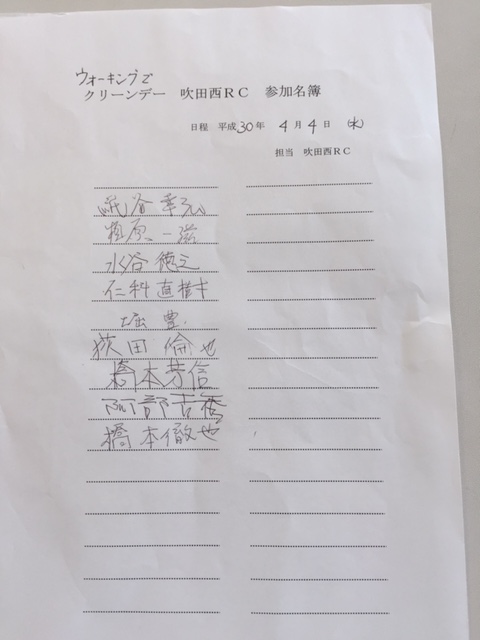 ウォーキングで
クリーンデー 吹田西RC 参加名簿
日程 平成30年 4月4日 (水)
担当 吹田西RC
谷
原 一滋
水谷 徳之
仁科 直樹
堀 豊
荻田 倫也
橋本芳信
阿部吉秀
橋本徹也